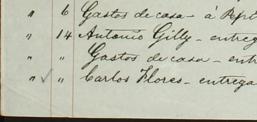 " 6 Gastos de casa - á
" 14 Antonio Gilly - entreg
" " Gastos de casa - ent
" " Carlos Flores - entrega